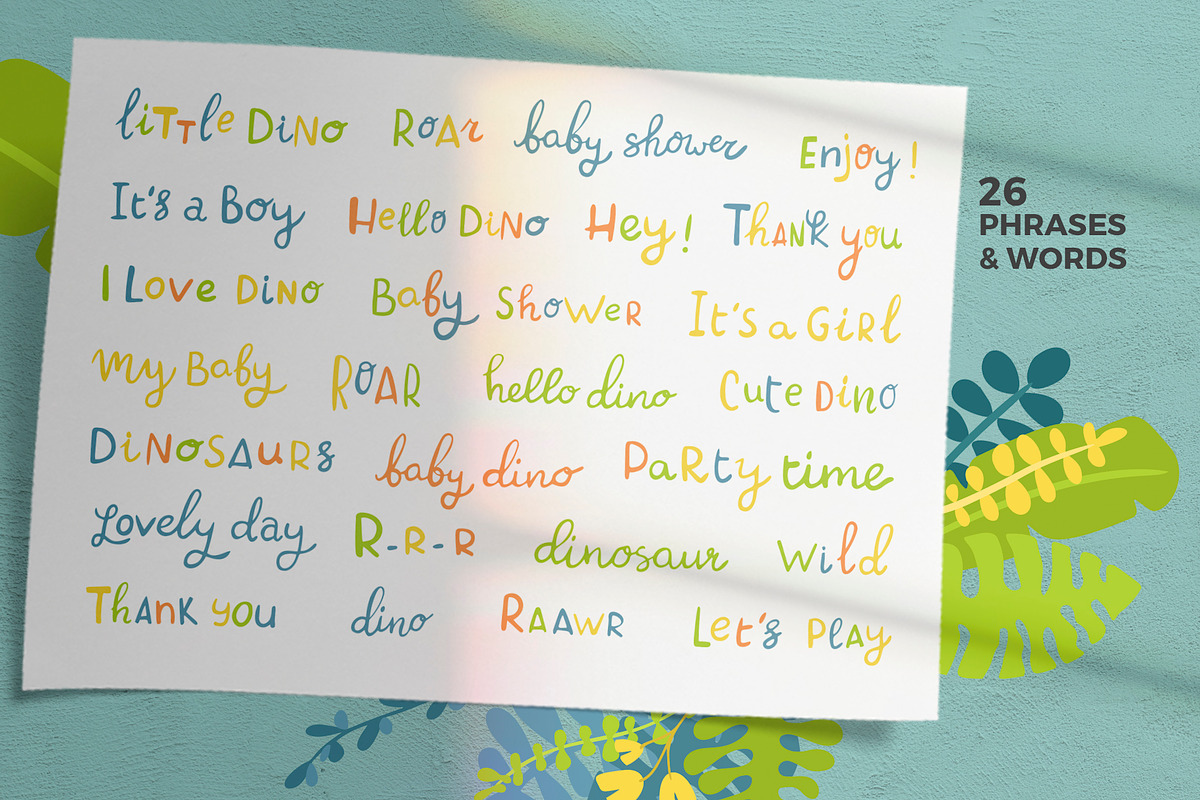 liTTle DiNo RoAr baby shower Enjoy!
It's a Boy Hello DiNo Hey! ThANK you
I Love DiNo Baby ShoWeR It's a GiRl
my Baby ROAR hello dino Cute Dino
DiNoSAuRs baby dino PaRty time
Lovely day R-R-R dinosaur Wild
ThAnK you dino RAAWR Let's Play
26
PHRASES
& WORDS